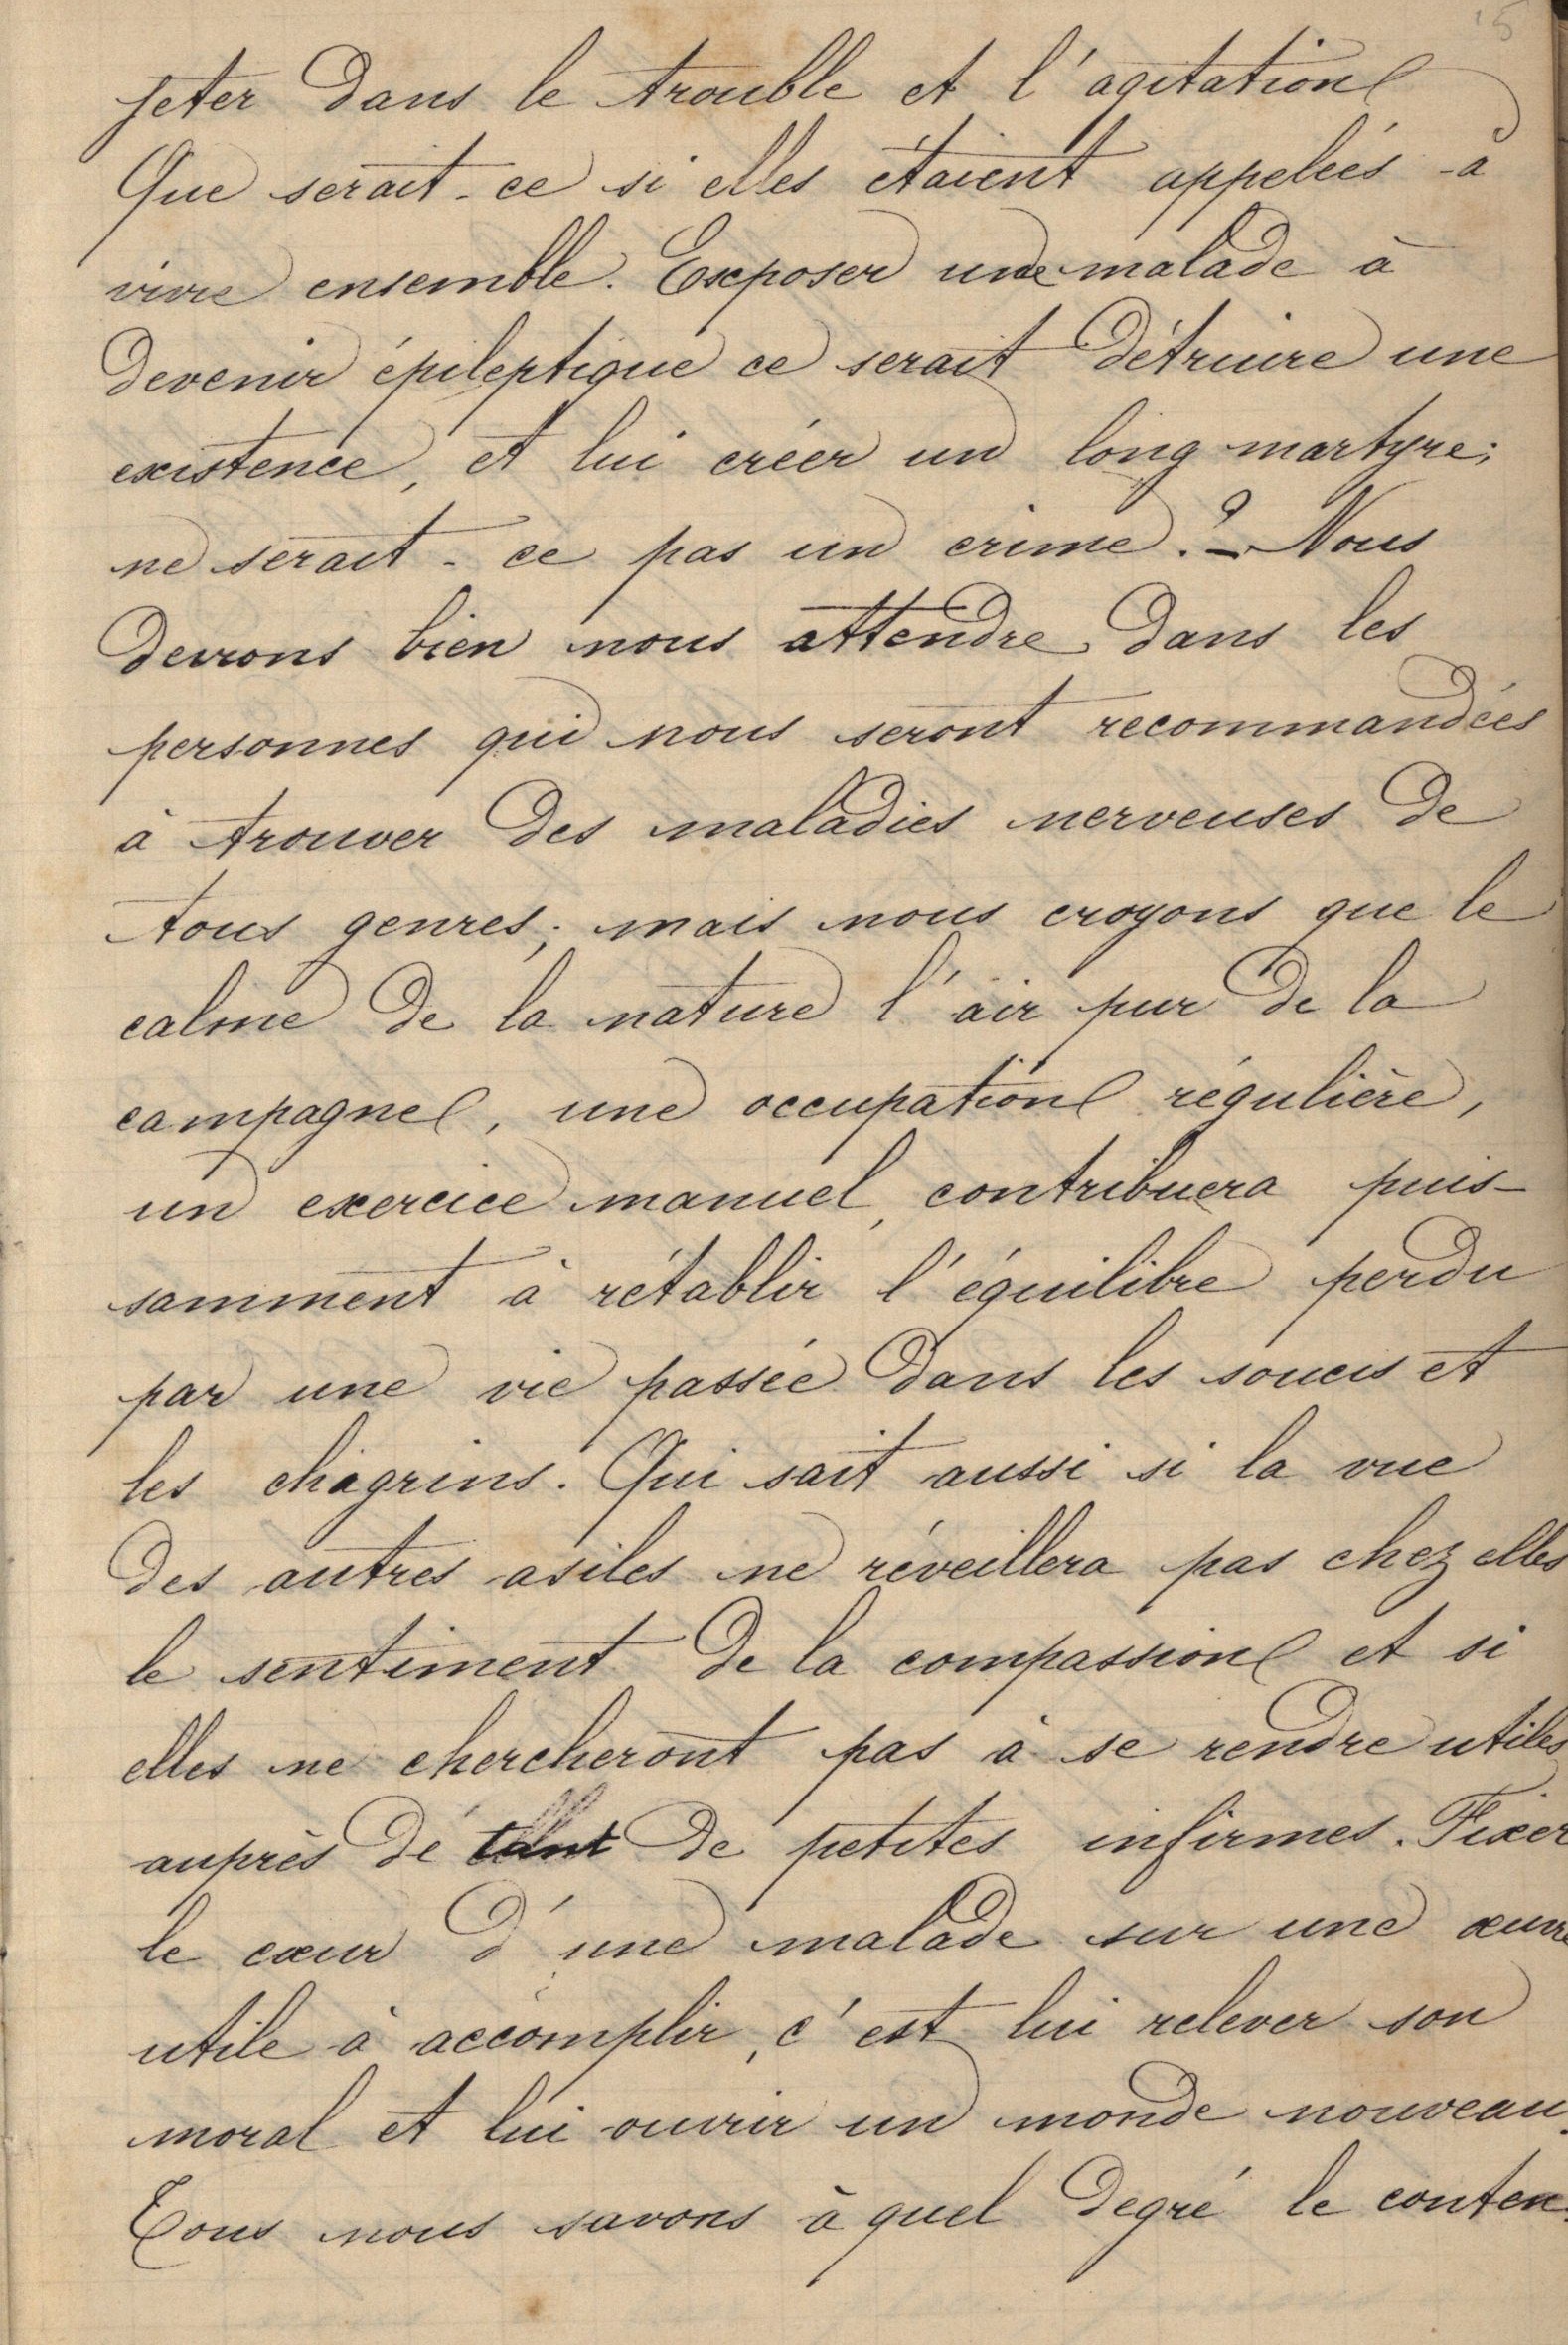 jeter dans le trouble et l'agitation
Que serait-ce si elles étaient appelées à
vivre ensemble. Exposer une malade à
devenir épileptique ce serait détruire une
existence, et lui créer un long martyre;
ne serait-ce pas un crime? - Nous
devons bien nous attendre dans les
personnes qui nous seront recommandées
à trouver des maladies nerveuses de
tous genres; mais nous croyons que le
calme de la nature l'air pur de la
campagne, une occupation régulière,
un exercice manuel, contribuera puis-
samment à rétablir l'équilibre perdu
par une vie passée dans les soucis et
les chagrins. Qui sait aussi si la vue
des autres asiles ne réveillera pas chez elles
le sentiment de la compassion et si
elles ne chercheront pas à se rendre utiles
auprès de tant de petites infirmes. Fixer
le cœur d'une malade sur une œuvre
utile à accomplir, c'est lui relever son
moral et lui ouvrir un monde nouveau.
Tous nous savons à quel degré le conten